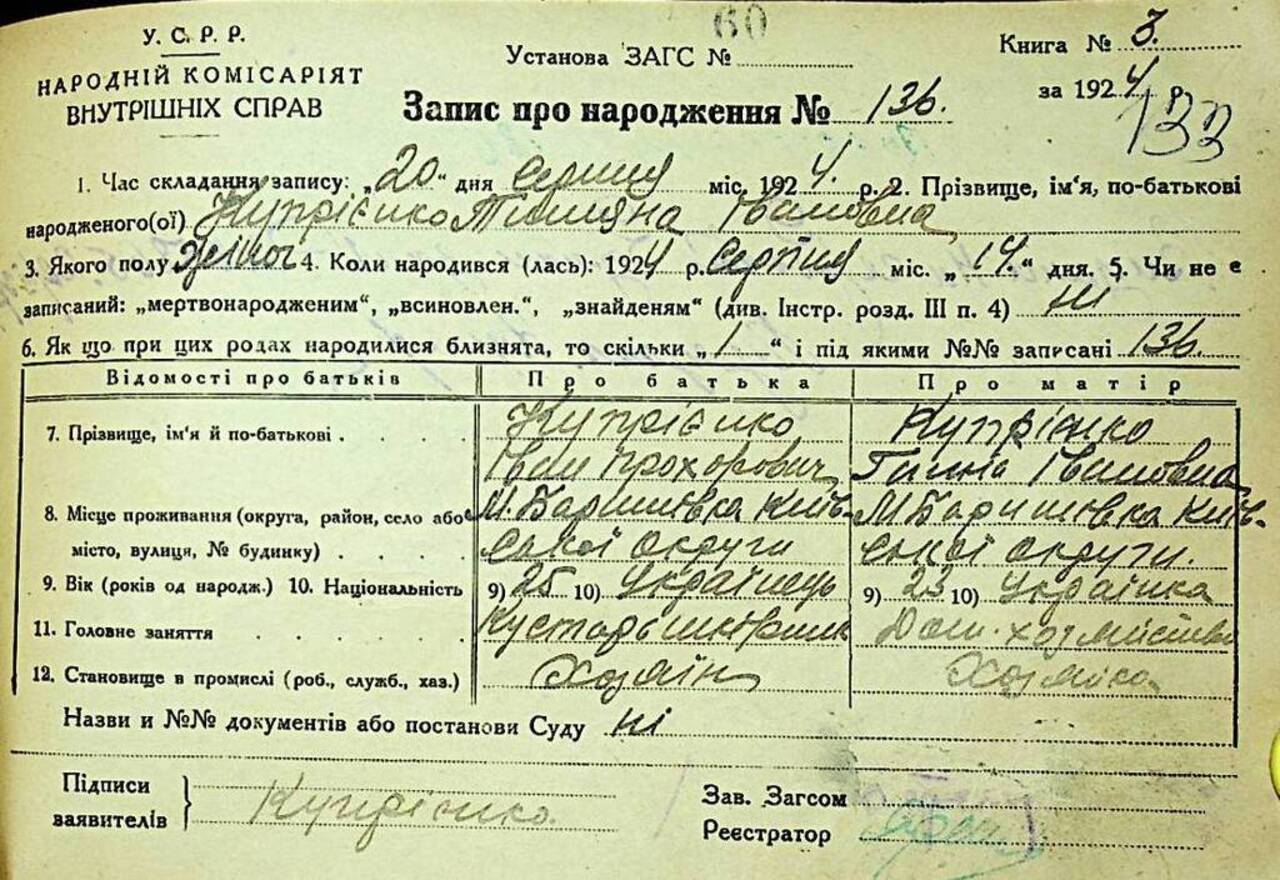 60
У. С. Р. Р.
НАРОДНІЙ КОМІСАРІЯТ
ВНУТРІШНІХ СПРАВ
Установа ЗАГС №
Книга № 3.
за 1924 р.
133
Запис про народження № 136.
1. Час складання запису: „20“ дня серпня міс. 1924. р. 2. Прізвище, ім'я, по-батькові
народженого(ої) Купрієнко Іванівна
3. Якого полу жіноч 4. Коли народився (лась): 1924 р. серпня міс. „14.“ дня. 5. Чи не є
записаний: „мертвонародженим“, „всиновлен.“, „знайденям“ (див. Інстр. розд. III п. 4) ні
6. Як що при цих родах народилися близнята, то скільки „1“ і під якими №№ записані 136.
Відомості про батьків Про батька Про матір
7. Прізвище, ім'я й по-батькові . . . . Купрієнко Купрієнко
Іван Прохорович Ганна Івановна
8. Місце проживання (округа, район, село або М. Баришівка Київ- М Баришівка Київ-
місто, вулиця, № будинку) . . . . ської округи ської округи.
9. Вік (років од народж.) 10. Національність 9) 25 10) Українець 9) 23 10) Українка
11. Головне заняття . . . . . . Кустарь шкірник Дом. хозяйство
12. Становище в промислі (роб., служб., хаз.) Хозяїн Хозяйка
Назви и №№ документів або постанови Суду ні
Підписи
заявителів Купрієнко.
Зав. Загсом
Реєстратор